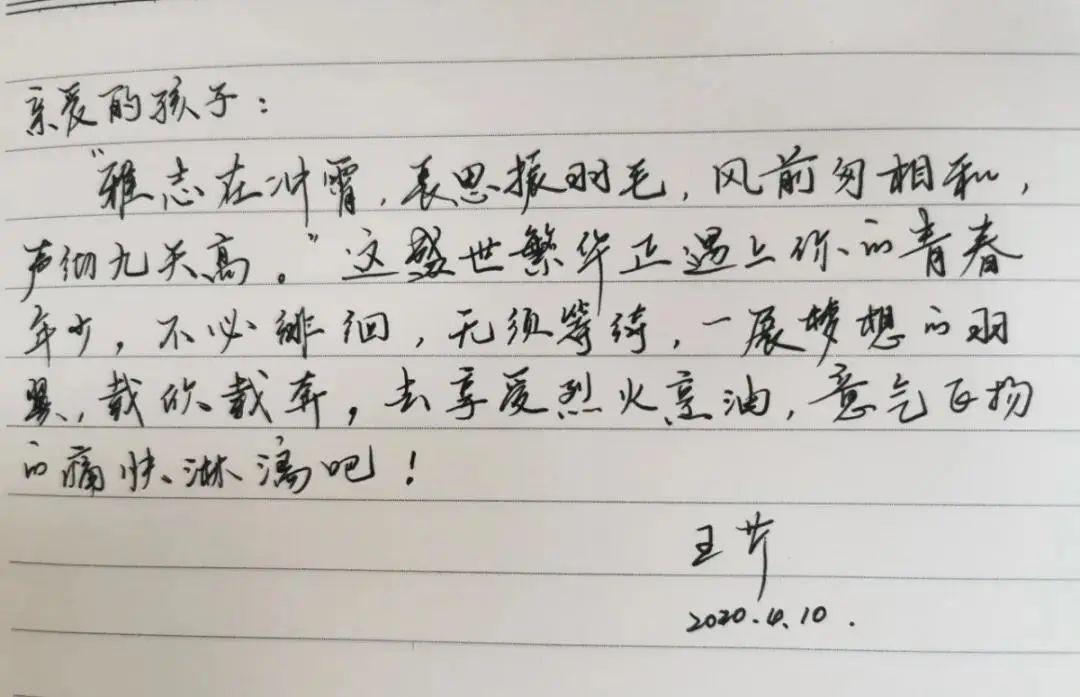 亲爱的孩子：
“雅志在冲霄，长思振羽毛，风前相和，
声彻九天高。”这盛世繁华正遇上你的青春
年少，不必徘徊，无须等待，一展梦想的羽
翼，载欣载奔，去享受烈火烹油，意气飞扬
的痛快淋漓吧！
王
2020.4.10.